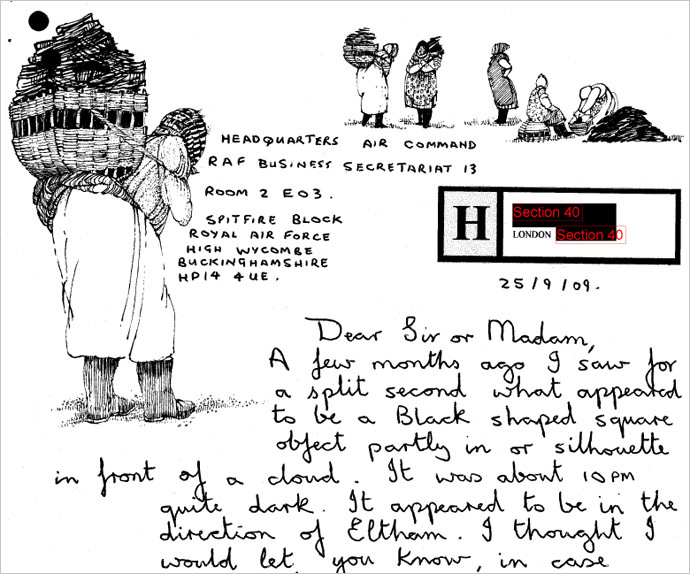 HEADQUARTERS AIR COMMAND
RAF BUSINESS SECRETARIAT 13
ROOM 2 E03.
SPITFIRE BLOCK
ROYAL AIR FORCE
HIGH WYCOMBE
BUCKINGHAMSHIRE
HP14 4UE.
H
Section 40
LONDON Section 40
25/9/09.
Dear Sir or Madam,
A few months ago I saw for
a split second what appeared
to be a Black shaped square
object partly in or silhouette
in front of a cloud. It was about 10PM
quite dark. It appeared to be in the
direction of Eltham. I thought I
would let you know, in case